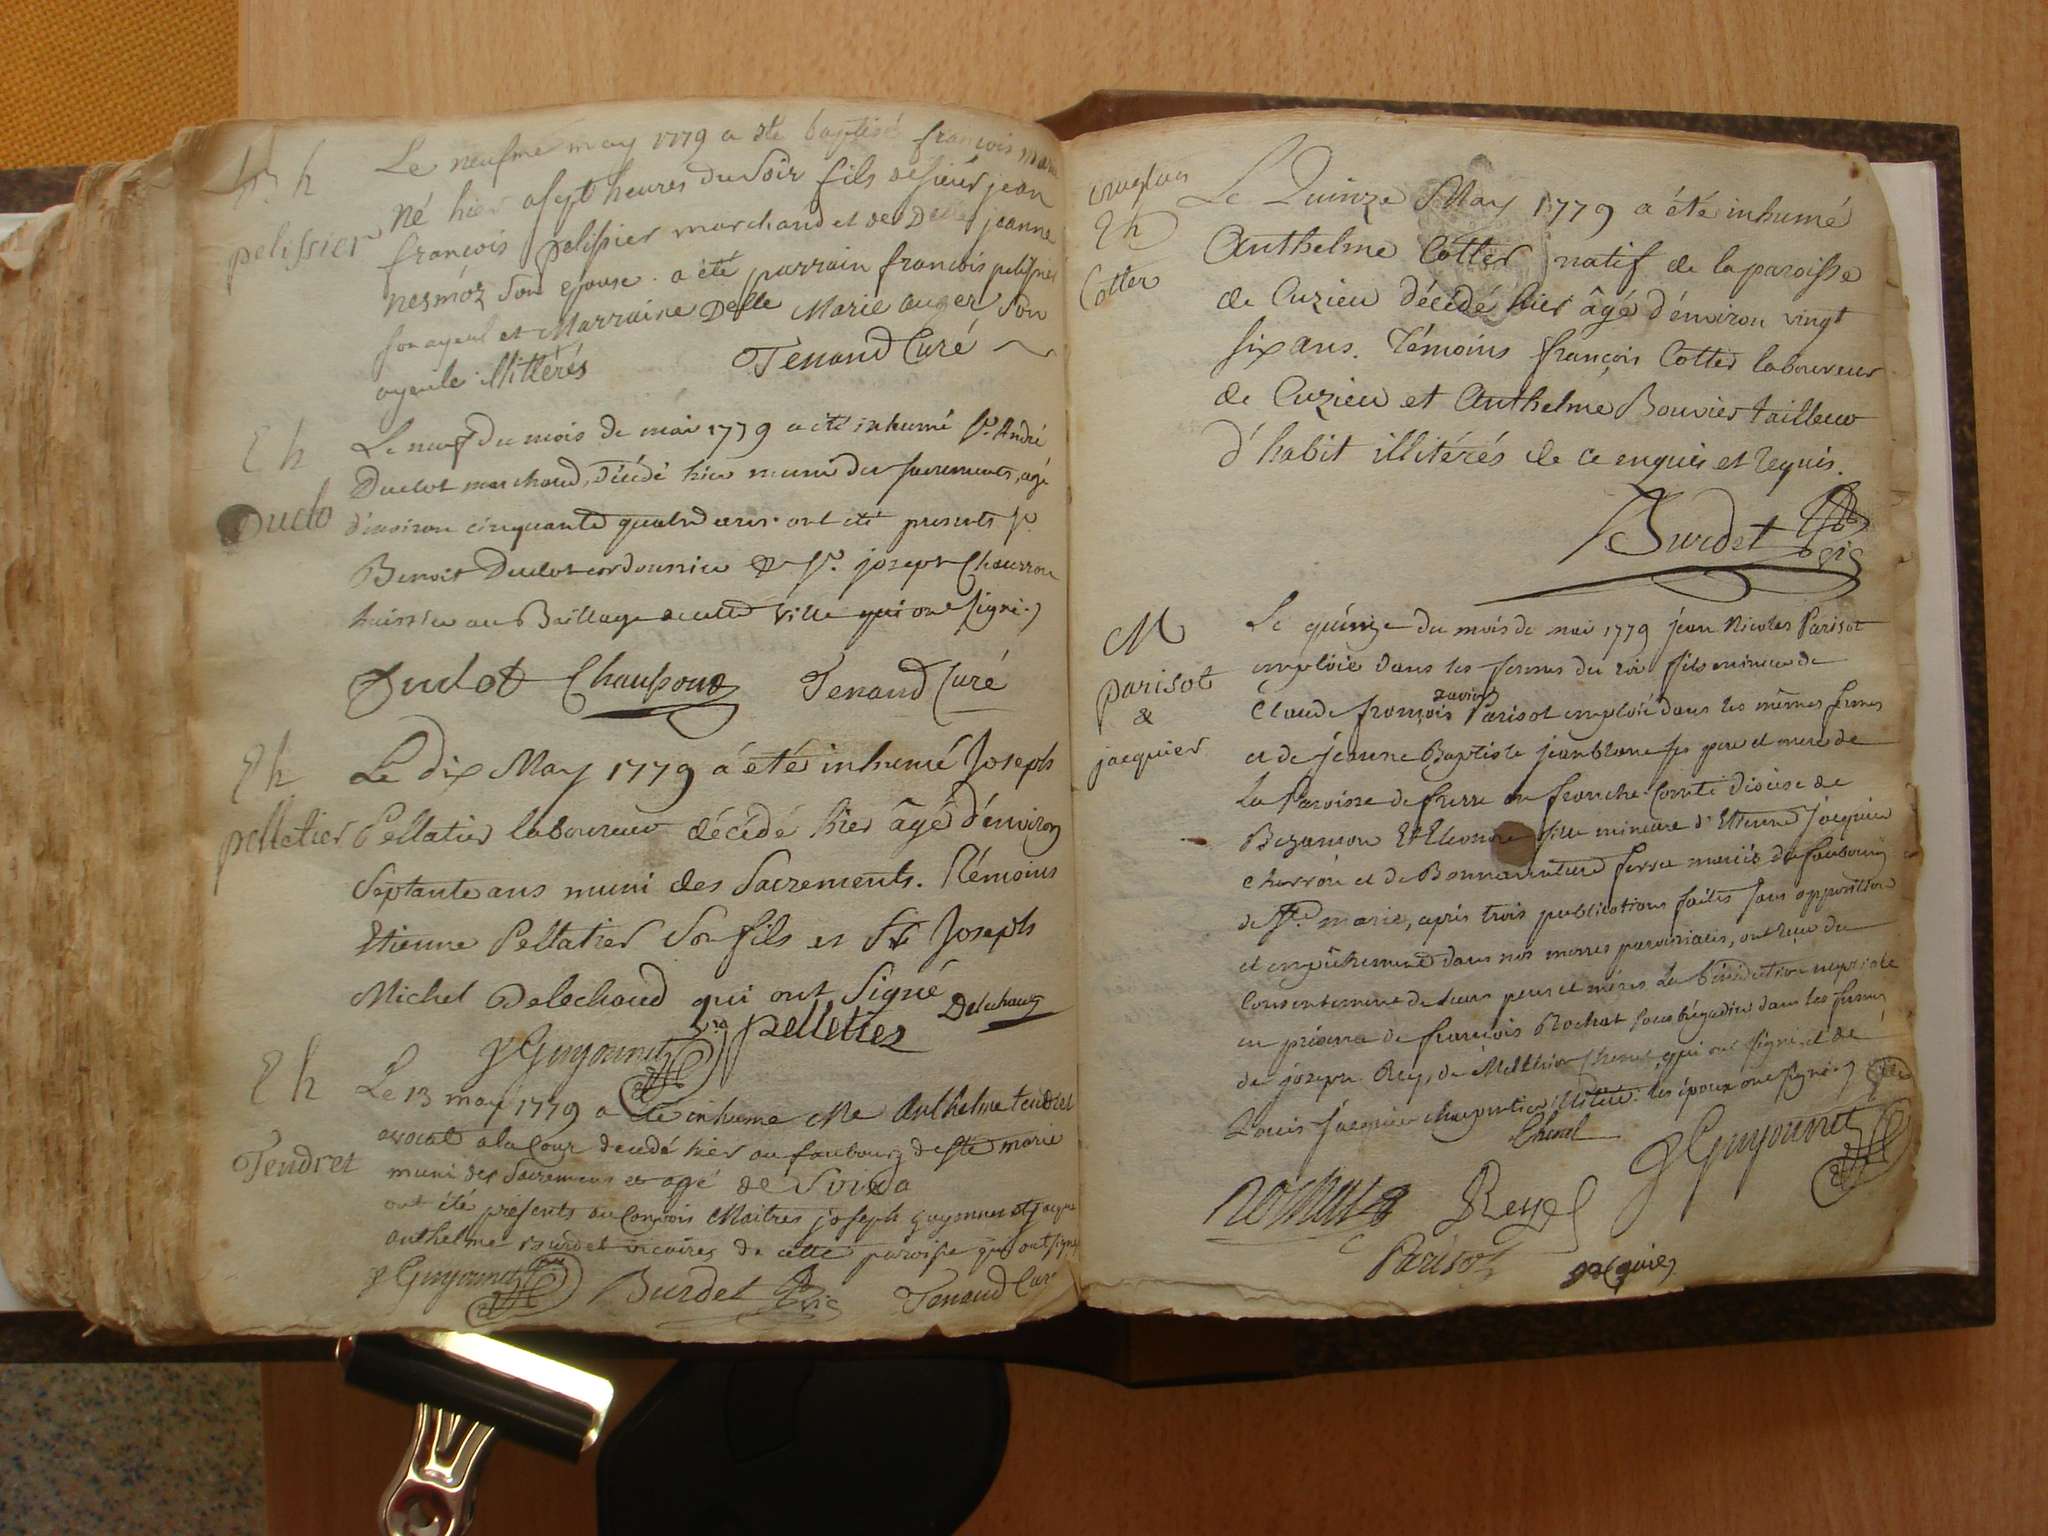 B h
pelissier
Le neufme may 1779 a ete baptisé françois marie
né hier a sept heures du soir fils de sieur jean
françois pelissier marchand et de Delle jeanne
nesmoz son epouse. a été parrain françois pelissier
son ayeul et Marraine Delle Marie auger son
ayeule illitérés
Tenand Curé
E h
Duclo
Le neuf du mois de mai 1779 a été inhumé Sr. André
Duclot marchand, décédé hier muni des sacrements, agé
d'environ cinquante quatre ans. ont été presents Sr
Benoit Duclot cordonnier & Sr. joseph Chausson
huissier au Baillage de cette ville qui ont signé.
Duclot Chausson Tenand Curé
E h
pelletier
Le dix May 1779 a été inhumé Joseph
Pellatier laboureur décédé hier âgé d'environ
Septante ans muni des Sacrements. Témoins
Etienne Pellatier Son fils et Sr Joseph
Michel Delechaud qui ont Signé
pelletier
Guyonnet
E h
Tendret
Le 13 may 1779 a ete inhume Me Anthelme tendret
avocat a la Cour decedé hier au faubourg de ste marie
muni des Sacremens et agé de
ont été présents au Convois Maitres joseph guyonnet et jaque
anthelme Burdet vicaires de cette paroisse qui ont signé
Guyonnet Burdet vic Tenand Curé
E h
Cotter
Le Quinze May 1779 a été inhumé
Anthelme Cotter natif de la paroisse
de Cuzieu décédé hier âgé d'environ vingt
six ans. Témoins françois Cotter laboureur
de Cuzieu et Anthelme Bouvier tailleur
d'habit illitérés de ce enquis et requis.
Burdet
vic
M
parisot
&
jacquier
Le quinze du mois de mai 1779 jean Nicolas Parisot
emploié dans les fermes du roi fils mineur de
xavier
Claude françois Parisot emploié dans les mêmes fermes
et de jeanne Baptiste jeanblanc ses pere et mere de
La Paroisse de en franche Comté Diocèse de
Bezanson Et Eleonore fille mineure d'Etienne jacquier
charron et de Bonnaventure mariés du faubourg
de Ste marie, après trois publications faites sans opposition
et empêchement dans nos messes paroissiales, ont reçu du
Consentement de leurs peres et mères La bénédiction nuptiale
en présence de françois Rochat sous brigadier dans les fermes
de joseph Rey, de Melchior Chenet, qui ont signé, et de
Louis jacquier charpentier illitéré. les époux ont signé.
Guyonnet
Parisot jacquier